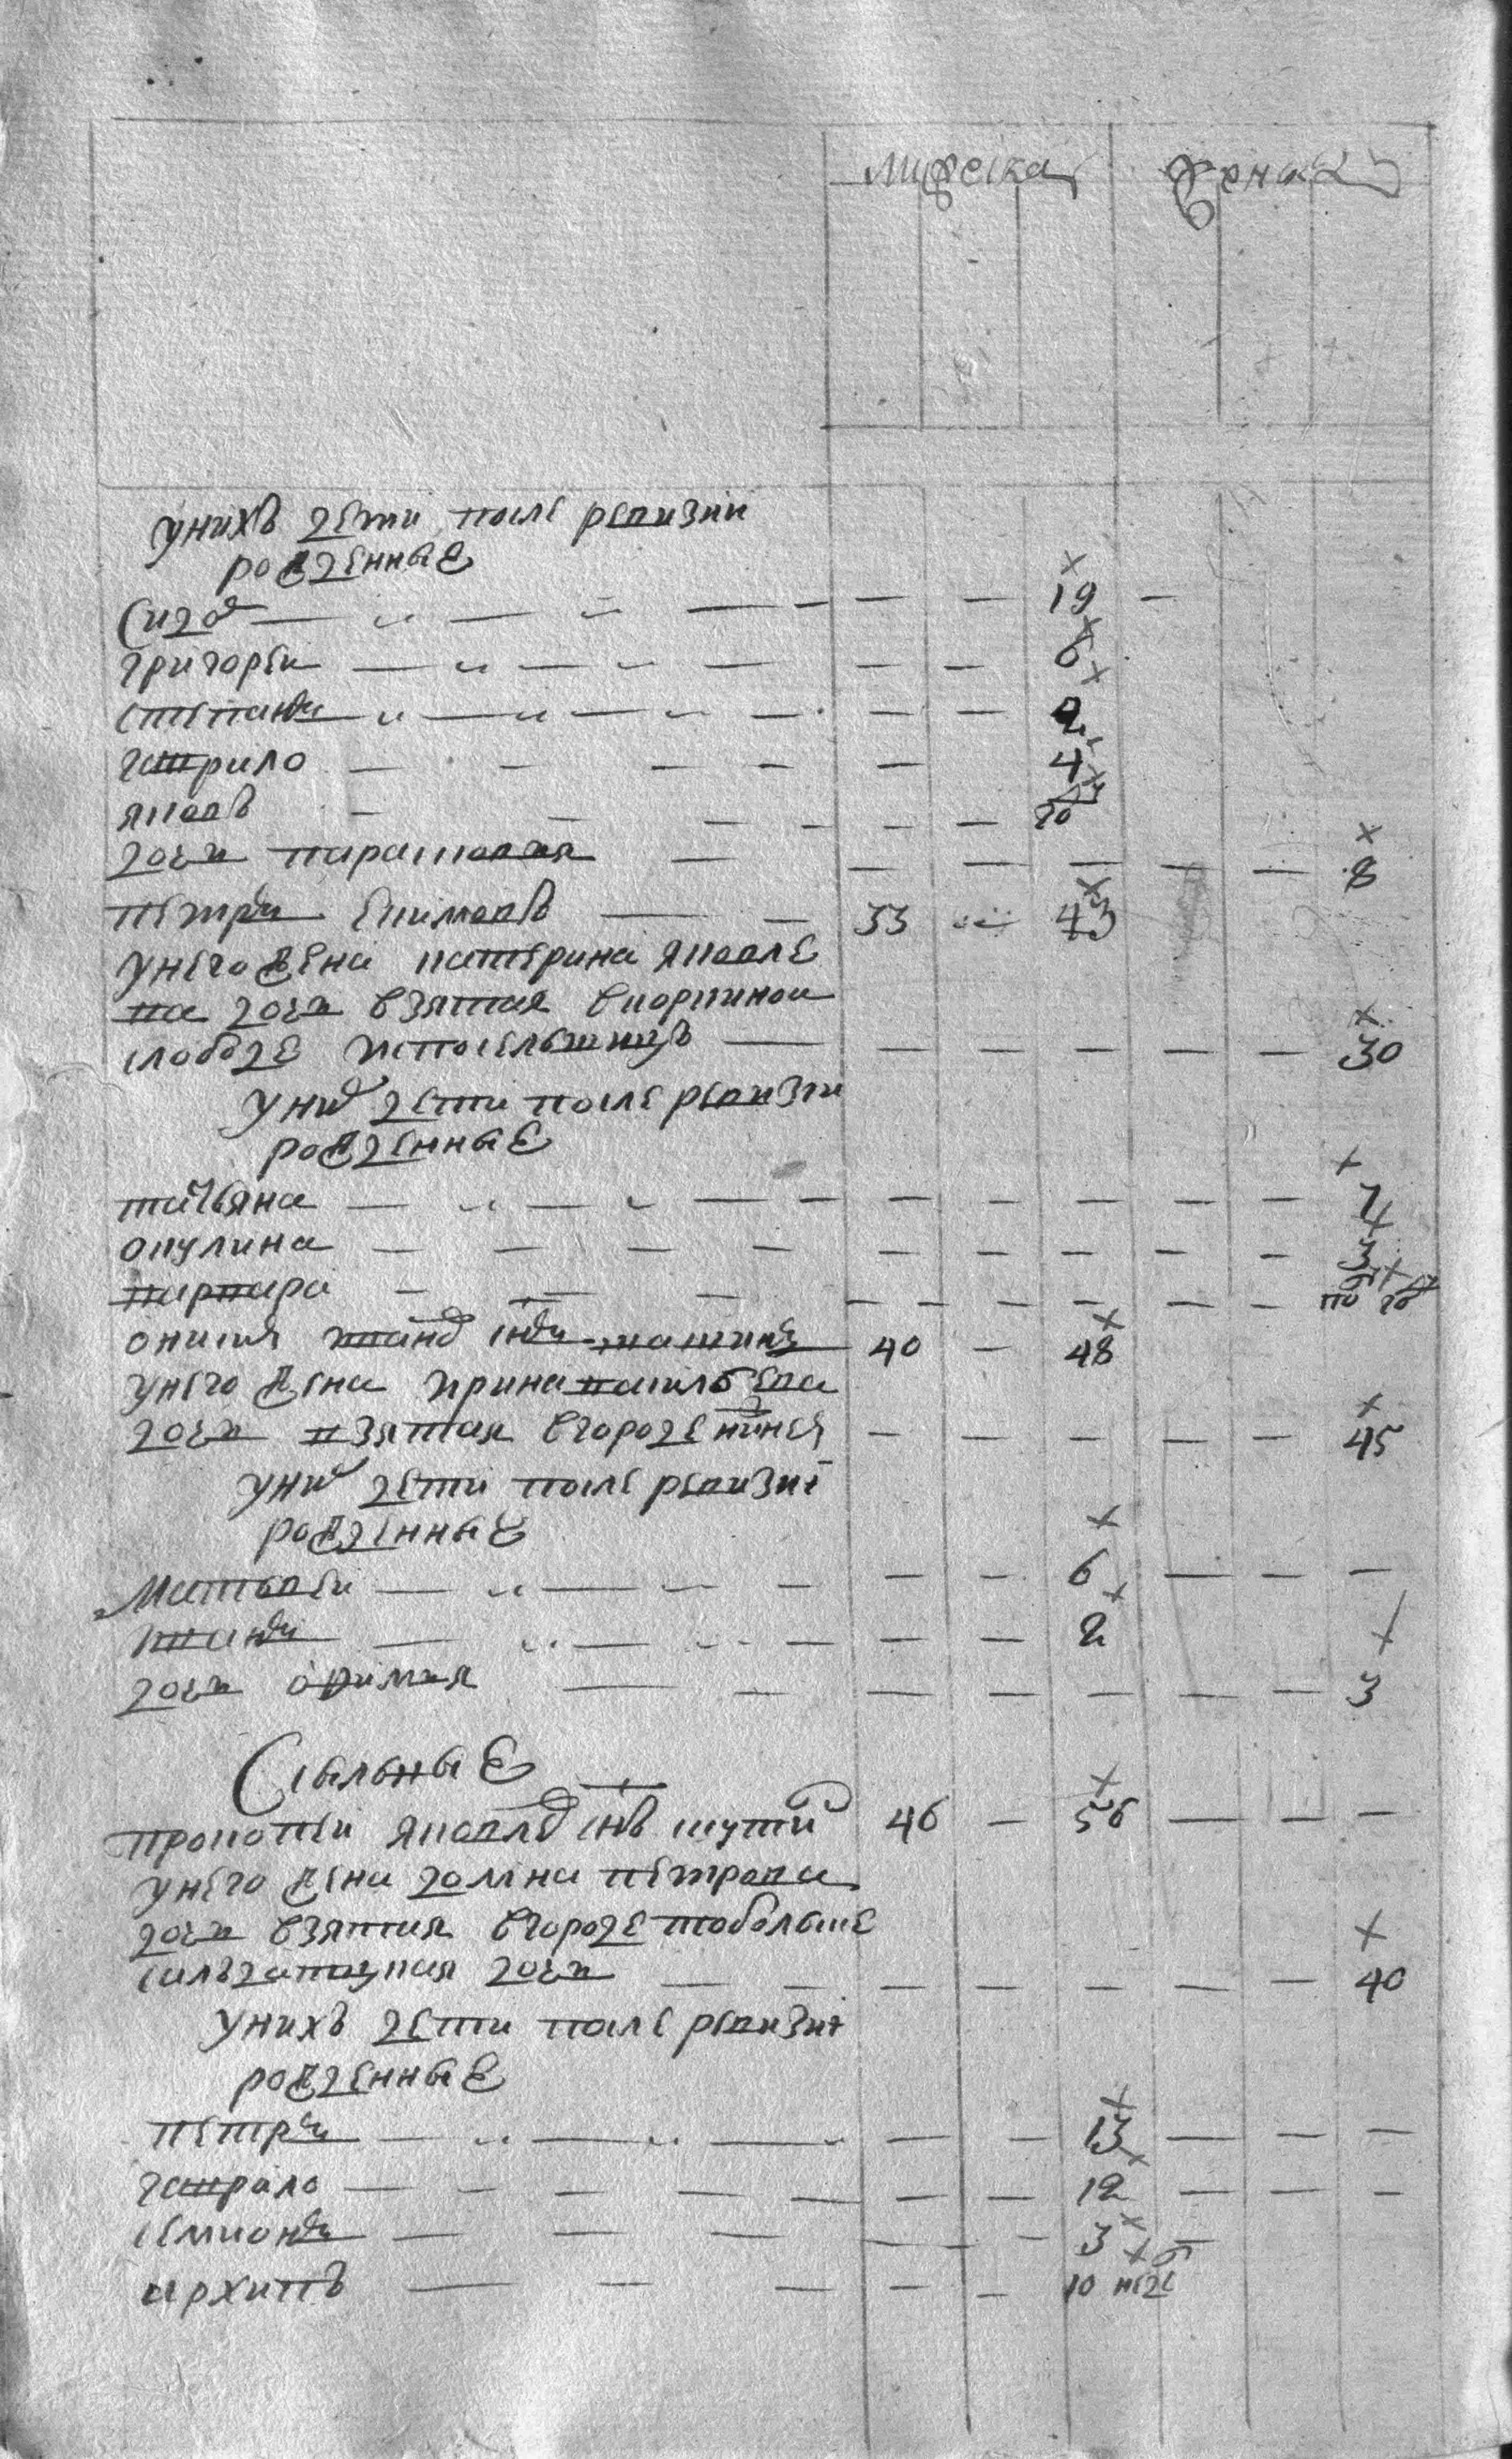 мужеска женска
у нихъ дети после ревизии
рожденные
Сидор 19
григореи 8
степанъ 2
гаврило 4
яковъ
дочь парасковья 8
петръ екимовъ 33 43
у него жена катерина яковле
ва дочь взятая в коркиной
слободе ис посельщицъ 30
у них дети после ревизии
рожденные
татьяна 7
окулина 3
варвара
онисим иванов снъ 40 48
у него жена ирина васильева
дочь взятая в городе 45
у них дети после ревизи
рожденные
Матвеи 6
иванъ 2
дочь офимья 3
Сыльные
прокопеи яковлев снъ шутки 46 56
у него жена домна петрова
дочь взятая в городе тобольске
салдатцкая дочь 40
у нихъ дети после ревизи
рожденные
петръ 13
гаврило 12
семионъ 3
архипъ 10 неде